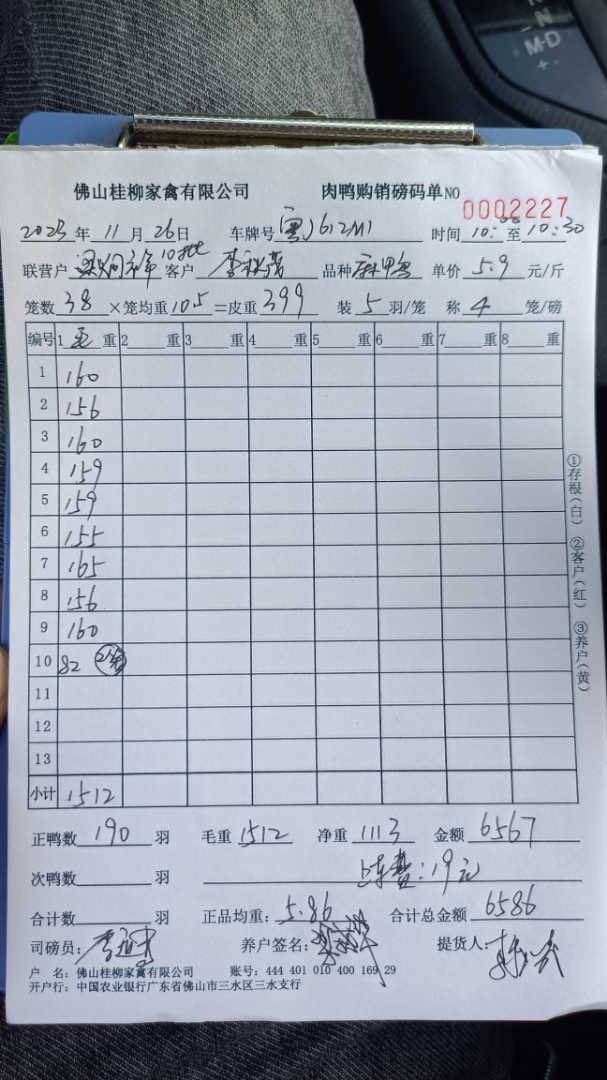 佛山桂柳家禽有限公司 肉鸭购销磅码单 NO 0002227
2025 年 11 月 26 日 车牌号 粤J612M1 时间 10:00 至 10:30
联营户 客户 品种 麻鸭 单价 5.9 元/斤
笼数 38 ×笼均重 10.5 =皮重 399 装 5 羽/笼 称 4 笼/磅
编号 1 毛 重 2 重 3 重 4 重 5 重 6 重 7 重 8 重
1 160
2 156
3 160
4 159
5 159
6 155
7 165
8 156
9 160
10 82 2笼
11
12
13
小计 1512
①存根(白) ②客户(红) ③养户(黄)
正鸭数 190 羽 毛重 1512 净重 1113 金额 6567
次鸭数 羽 上车费:19元
合计数 羽 正品均重: 5.86 合计总金额 6586
司磅员: 养户签名: 提货人
户 名: 佛山桂柳家禽有限公司 账号: 444 401 010 400 169 29
开户行: 中国农业银行广东省佛山市三水区三水支行
N
M-D
+